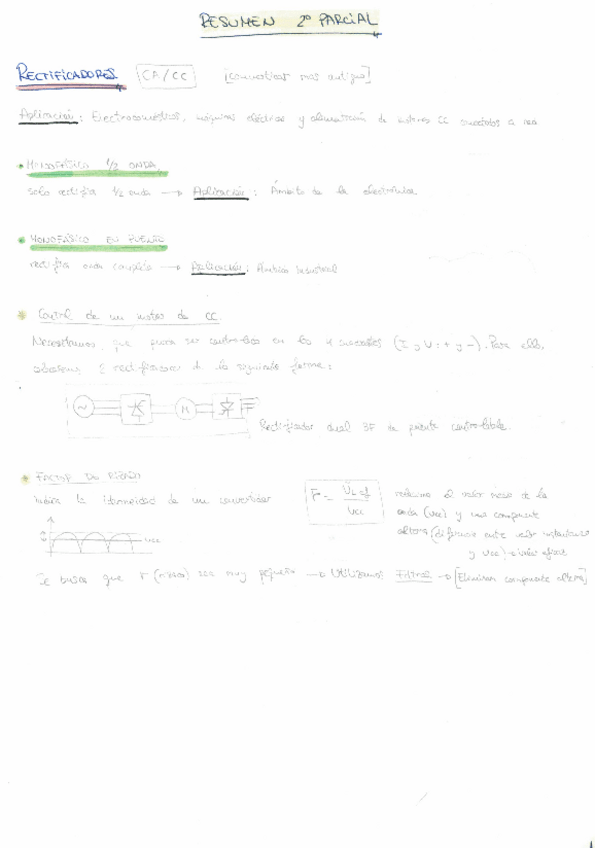 RESUMEN 2º PARCIAL
RECTIFICADORES CA/CC [convertidor más antiguo]
Aplicación: Electrodomésticos, máquinas eléctricas y alimentación de motores CC a red
• MONOFÁSICO 1/2 ONDA
solo rectifica 1/2 onda → Aplicación: Ámbito de la electrónica
• MONOFÁSICO EN PUENTE
rectifica onda completa → Aplicación: Ámbito industrial
* Control de un motor de CC.
Necesitamos que pueda ser controlado en los 4 cuadrantes (I y U = + y -). Para ello,
2 rectificadores de la siguiente forma:
~ M
Rectificador dual 3F de puente controlable.
* FACTOR DE RIZADO
la de un convertidor
r = Vcc
relaciona el valor medio de la
onda (Vcc) y una componente
alterna (diferencia entre valor instantáneo
y Vcc)
Vcc
Se busca que r (rizado) sea muy pequeño → Utilizamos Filtros → [Eliminan componente alterna]